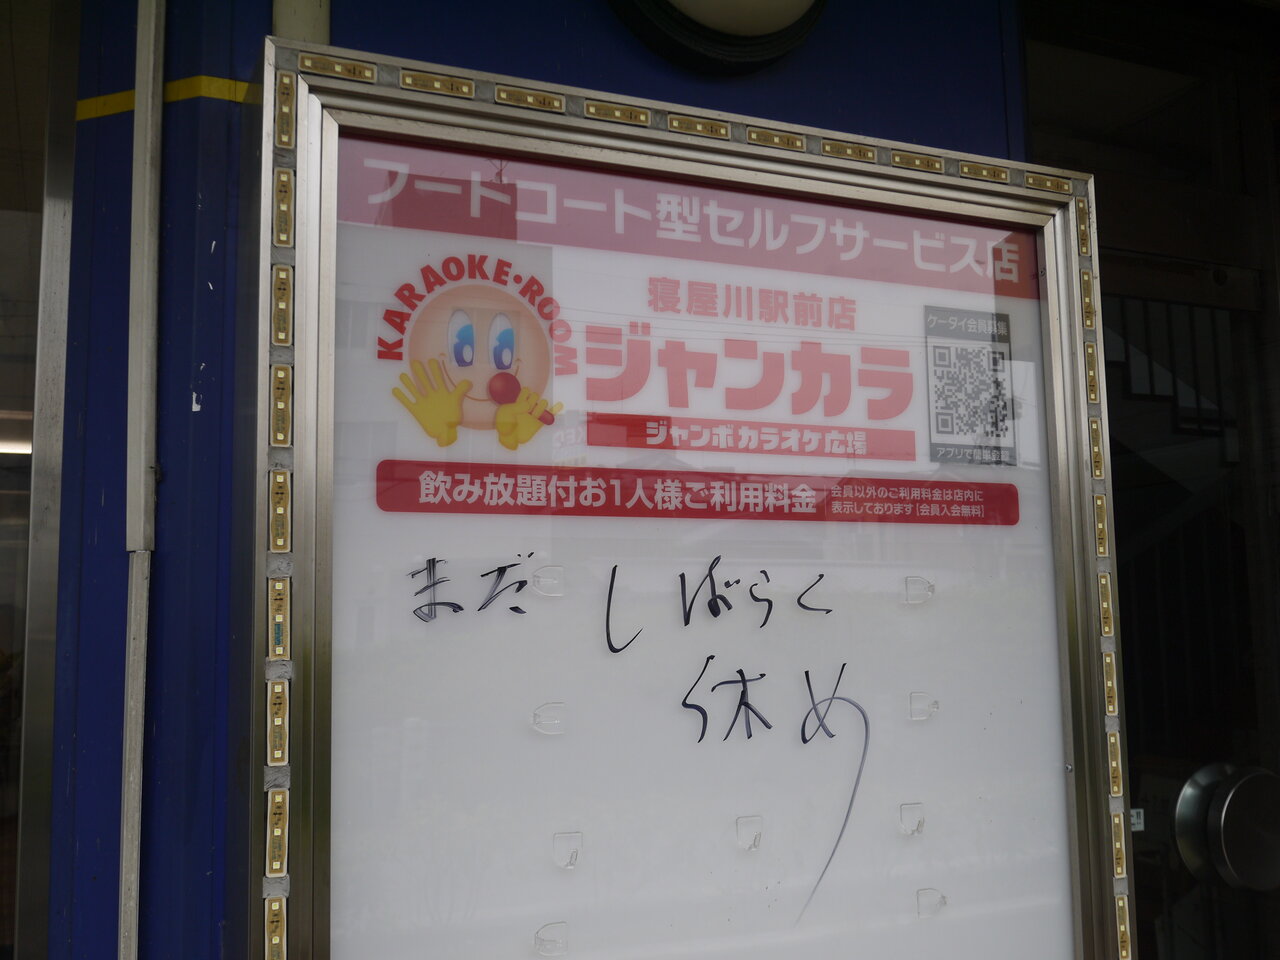 フードコート型セルフサービス店
KARAOKE・ROOM
寝屋川駅前店
ジャンカラ
ジャンボカラオケ広場
ケータイ会員募集
アプリで簡単登録
飲み放題付お1人様ご利用料金
会員以外のご利用料金は店内に
表示しております[会員入会無料]
まだ しばらく
休め